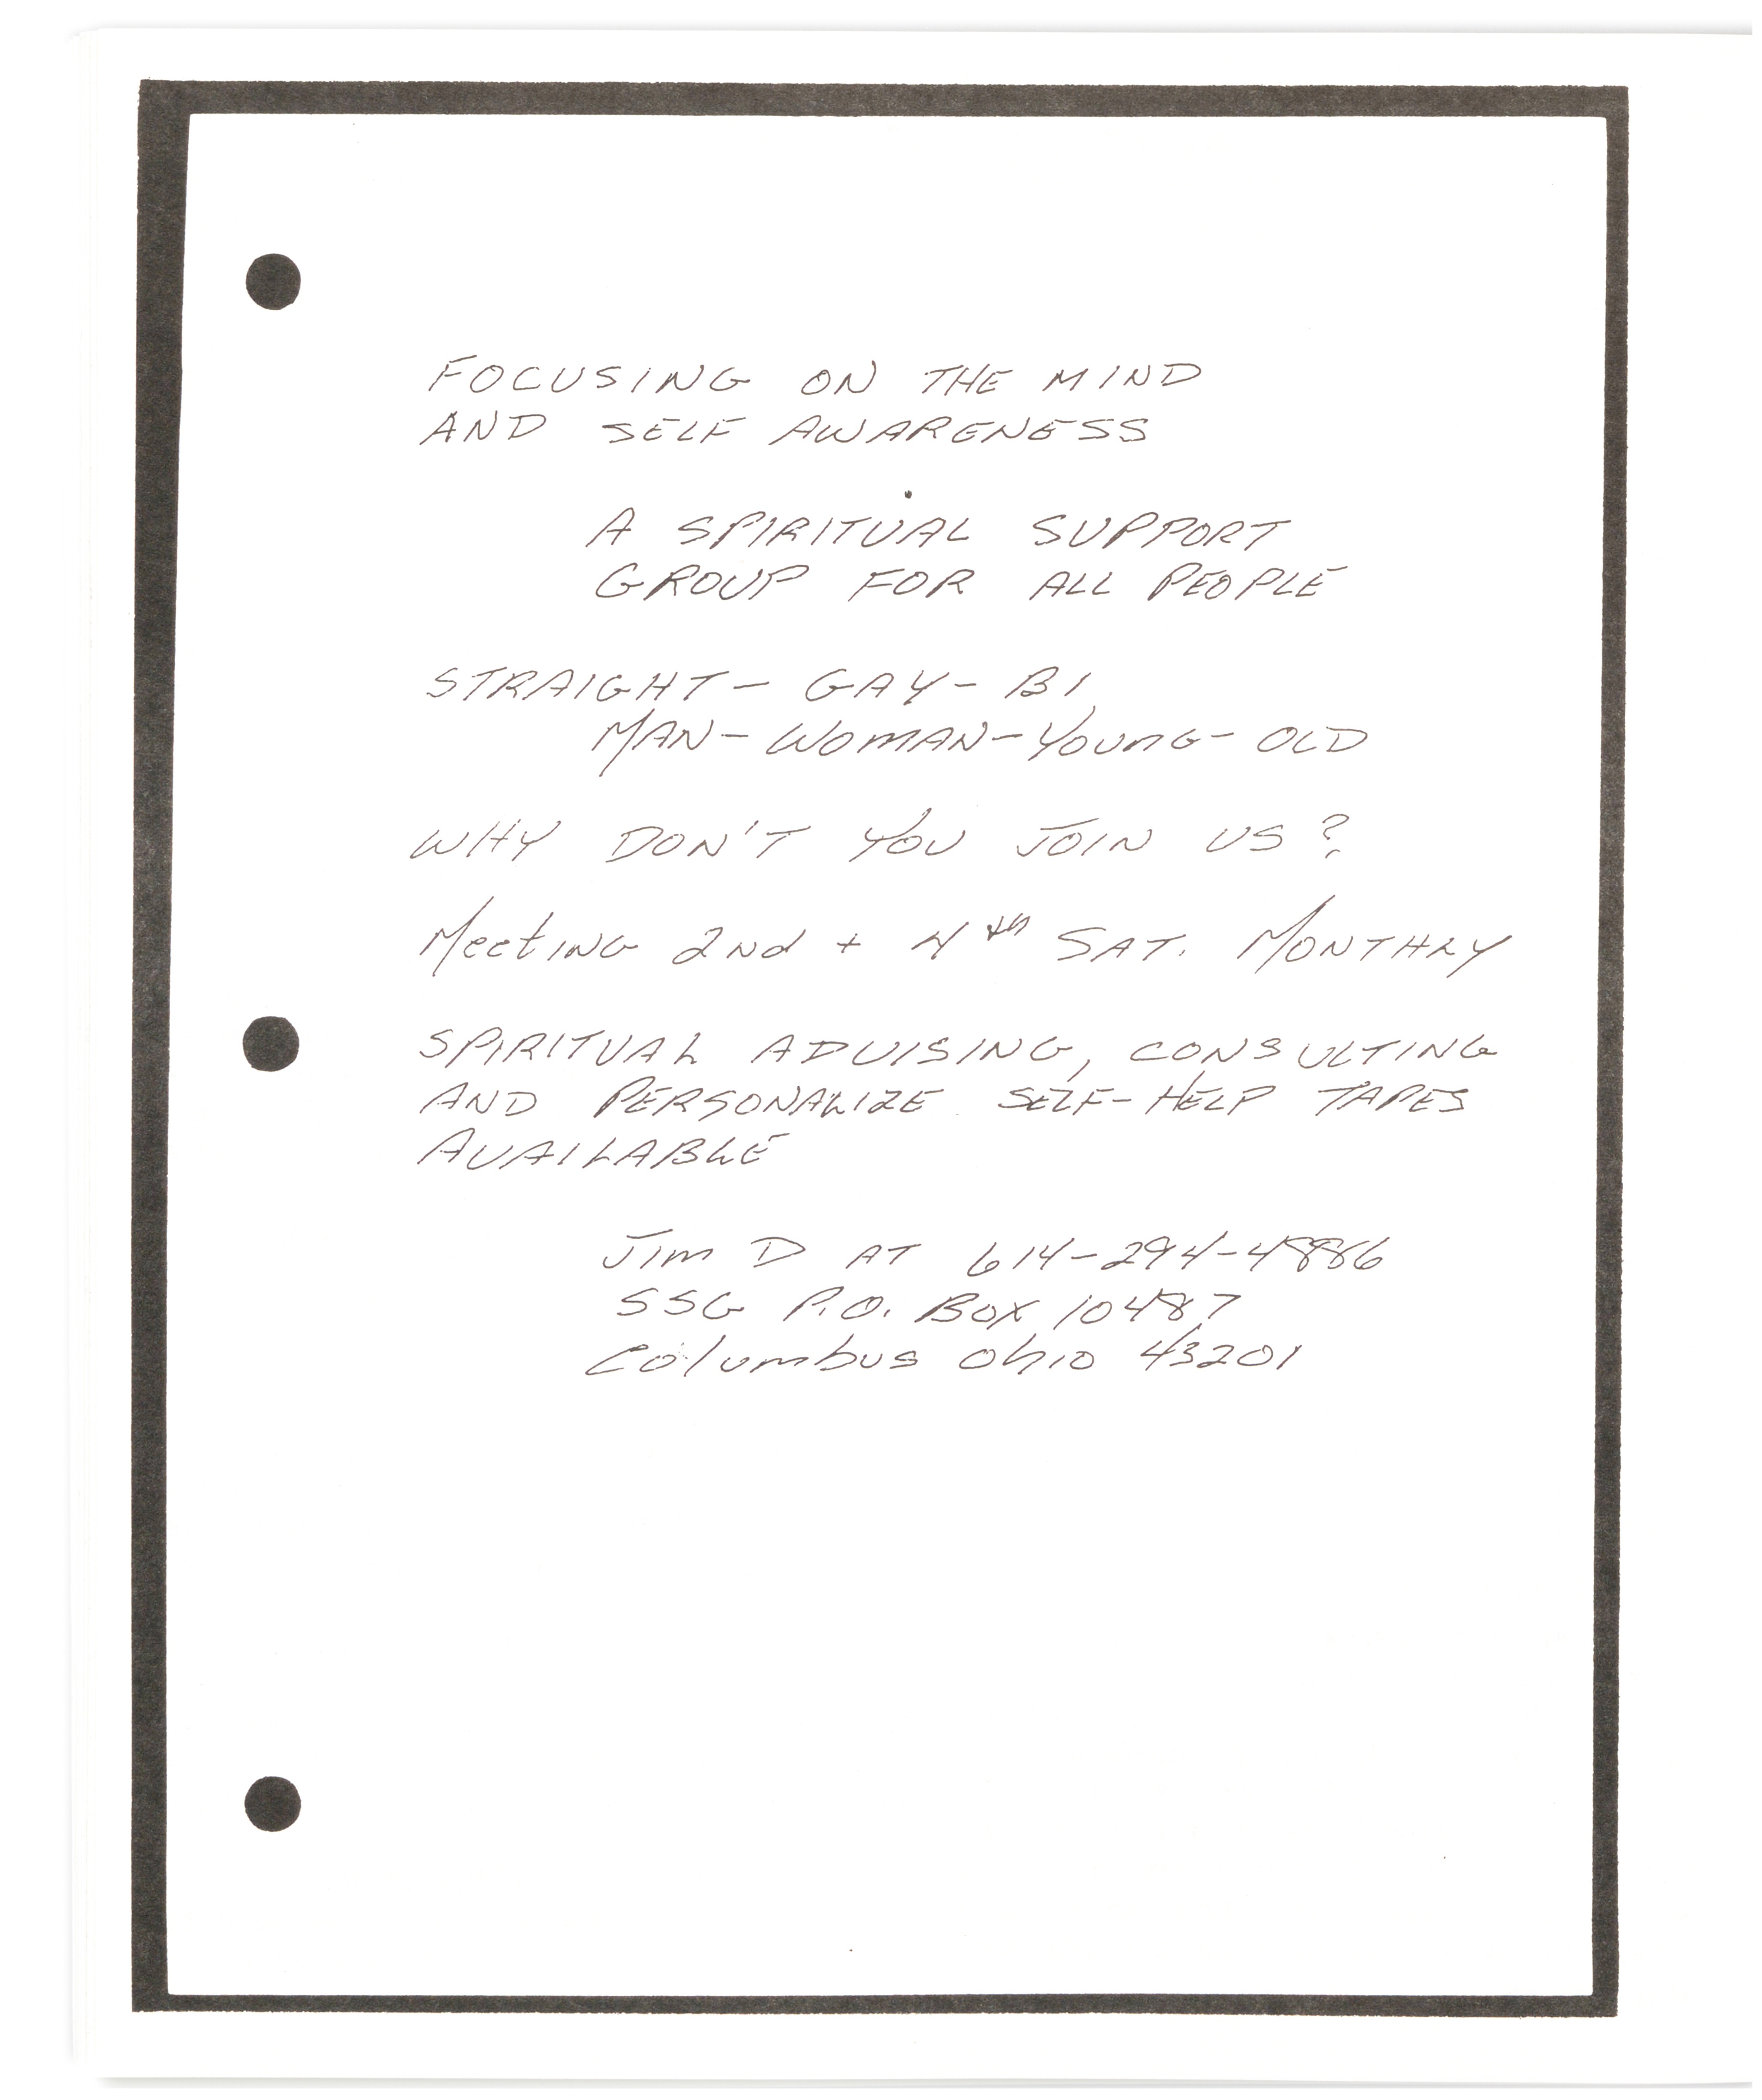 FOCUSING ON THE MIND
AND SELF AWARENESS
A SPIRITUAL SUPPORT
GROUP FOR ALL PEOPLE
STRAIGHT - GAY - BI
MAN - WOMAN - YOUNG - OLD
WHY DON'T YOU JOIN US?
MeetING 2Nd + 4th SAT. MONTHLY
SPIRITUAL ADVISING, CONSULTING
AND PERSONALIZE SELF-HELP TAPES
AVAILABLE
JIm D AT 614-294-4886
SSG P.O. BOX 10487
Columbus Ohio 43201